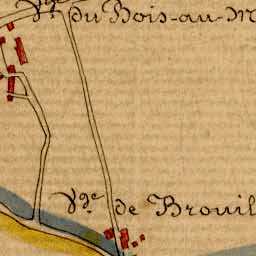 Vge du Bois-au-M
Vge de Brouil